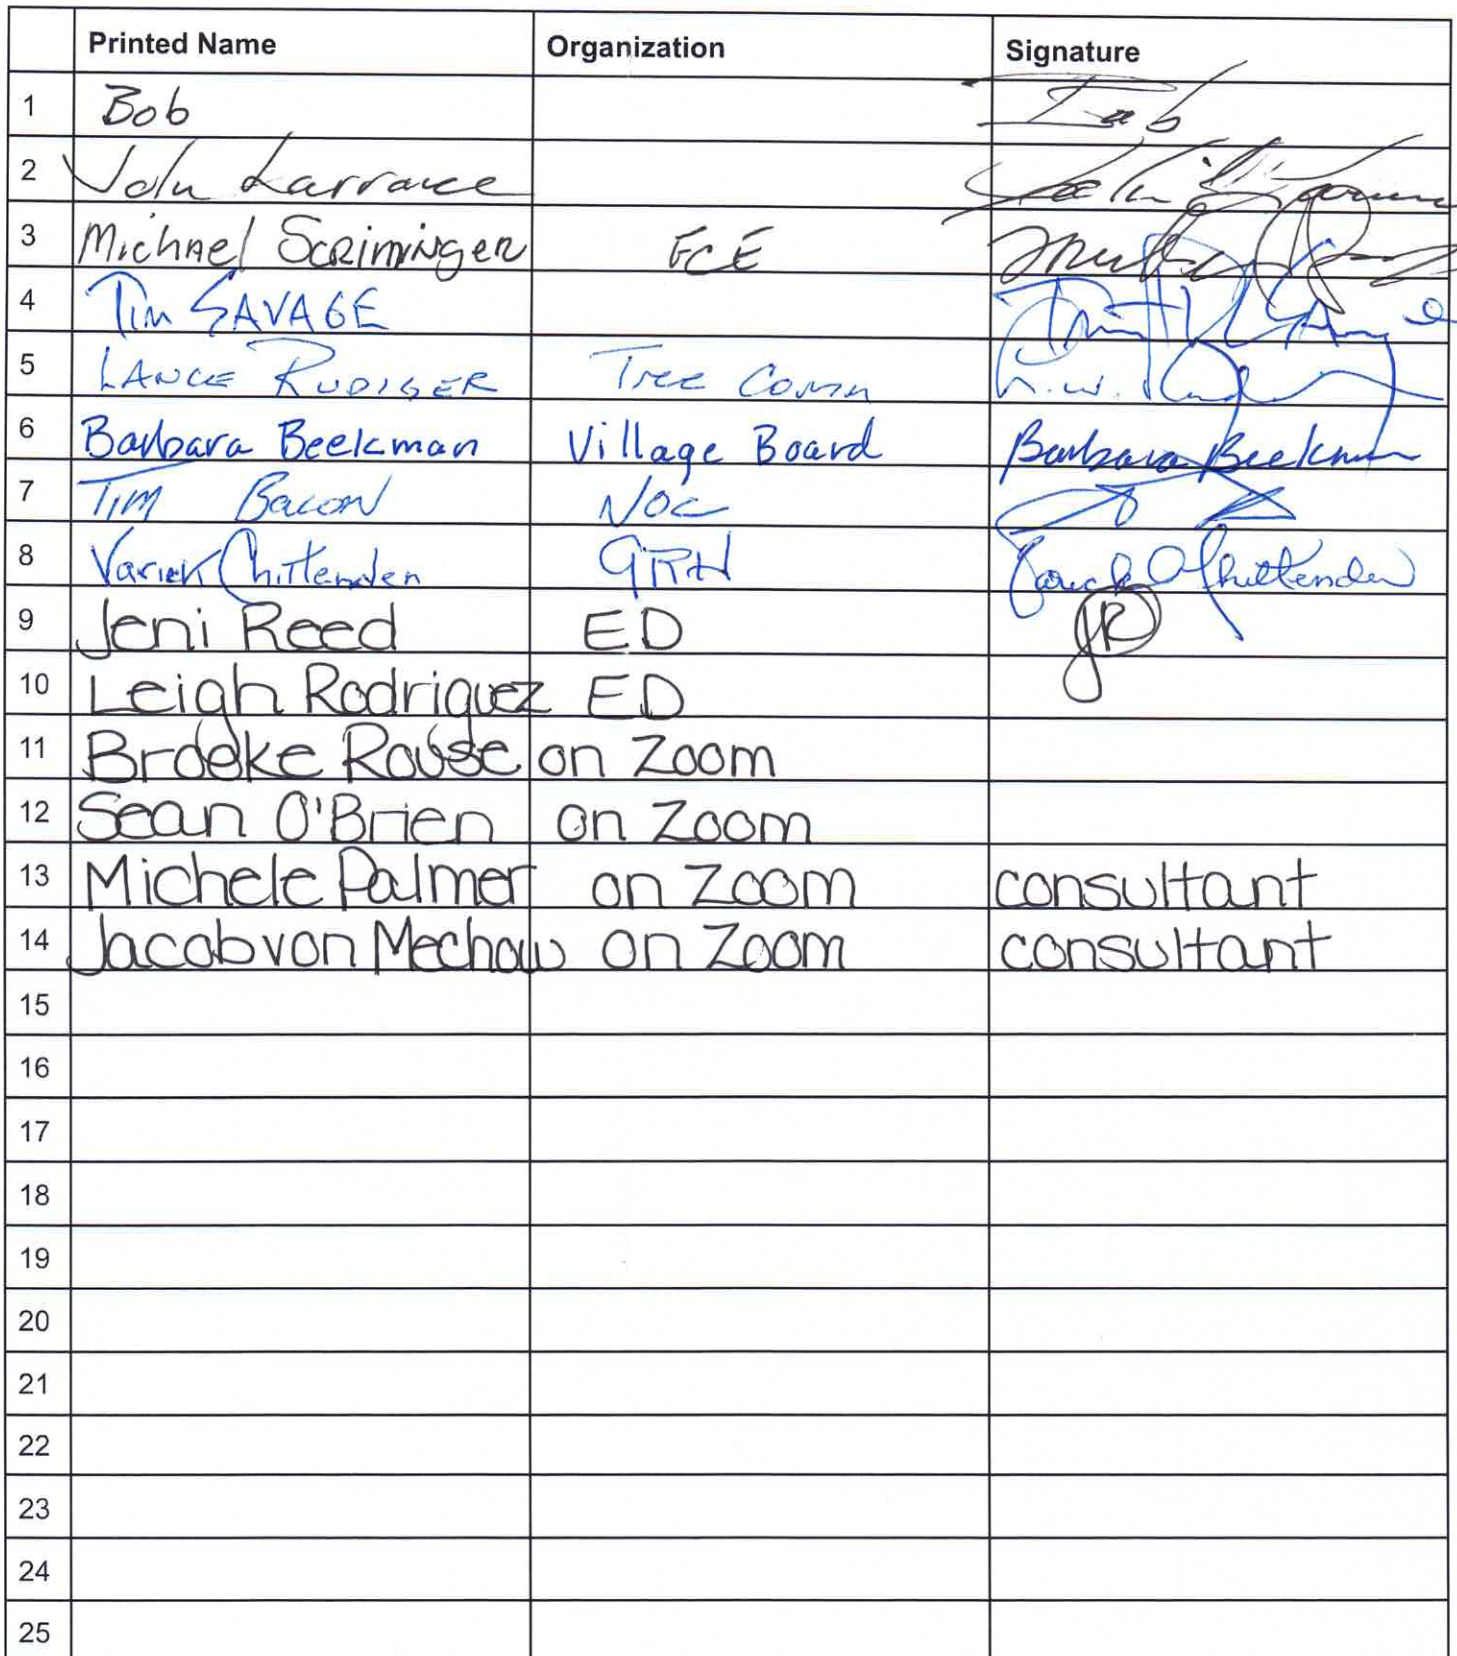 Printed Name Organization Signature
1 Bob Bob
2 John Larrance
3 Michael Scriminger FCE
4 Tim SAVAGE
5 LANCE RUDIGER Tree Comm L.W.
6 Barbara Beekman Village Board Barbara Beekman
7 TIM Bacon NOC
8 Varick Chittenden GRH Varick A Chittenden
9 Jeni Reed ED JR
10 Leigh Rodriguez ED
11 Brooke Rouse on Zoom
12 Sean O'Brien on Zoom
13 Michele Palmer on Zoom consultant
14 Jacob von Mechow on Zoom consultant
15
16
17
18
19
20
21
22
23
24
25